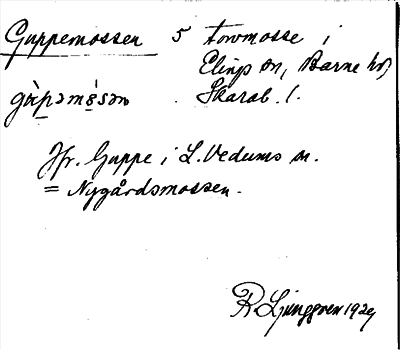 Guppemossen 5 torvmosse i
Elings sn, Barne hd
gùpəmósən Skarab. l.
Jfr. Guppe i L. Vedums sn.
= Nygårdsmossen.
R Ljunggren 1929